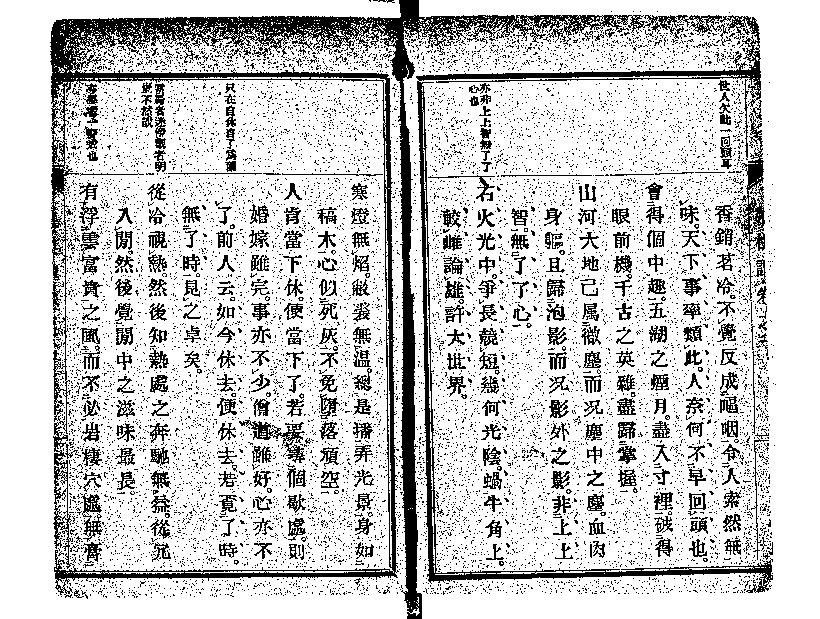 世人欠此一回頭耳
香銷茗冷。不覺反成嘔咽。令人索然無
味。天下事率類此。人奈何不早回頭也。
會得個中趣。五湖之煙月。盡入寸裡。破得
眼前機。千古之英雄。盡歸掌握。
山河大地已屬微塵。而況塵中之塵。血肉
身軀。且歸泡影。而況影外之影。非上上
智。無了了心。
亦非上上智無了了
心也
石火光中。爭長競短。幾何光陰。蝸牛角上。
較雌論雄。許大世界。
寒燈無焰。敝裘無溫。總是播弄光景。身如
槁木。心似死灰。不免墮落頑空。
人肯當下休。便當下了。若要尋個歇處。則
婚嫁雖完。事亦不少。僧道雖好。心亦不
了。前人云。如今休去。便休去。若覓了時。
無了時。見之卓矣。
只在自休自了
從冷視熱。然後知熱處之奔馳無益。從冗
入閒。然後覺閒中之滋味最長。
有浮雲富貴之風。而不必岩棲穴處。無膏